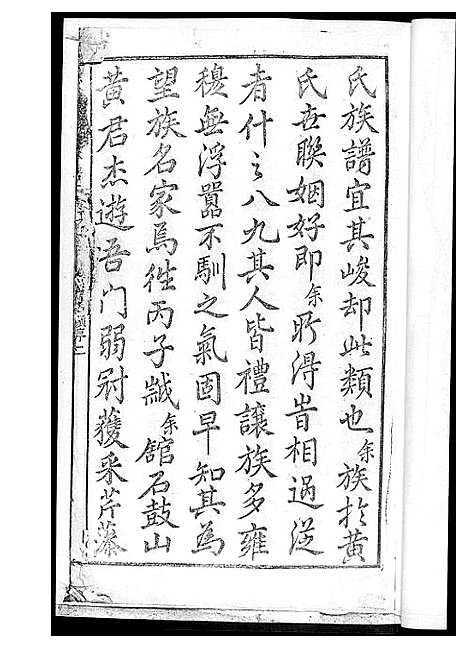 氏族譜宜其峻却此類也余族於黃
氏世聯姻好即余所得時相過從
者什之八九其人皆禮讓族多雍
穆無浮囂不馴之氣固早知其為
望族名家焉徃丙子歲余館石鼓山
黃君杰遊吾門弱冠獲采芹藻